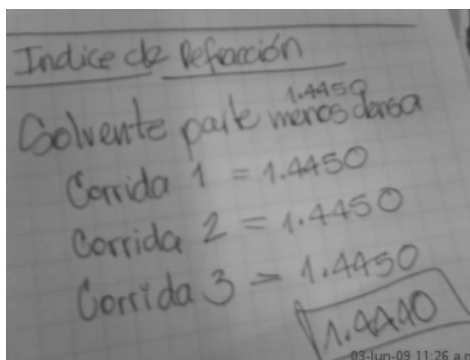 Indice de Refracción
1.4450
Solvente parte menos densa
Corrida 1 = 1.4450
Corrida 2 = 1.4450
Corrida 3 = 1.4450
1.4440
03-jun-09 11:26 a.m